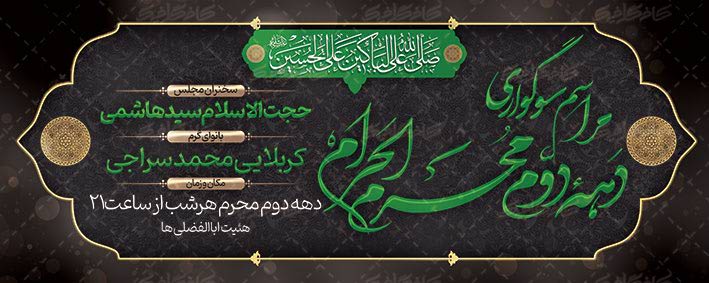 صَلَّى اللهُ عَلَى الْبَاكِينَ عَلَى الْحُسَيْنِ
مراسم سوگواری
دههٔ دوم محرم الحرام
سخنران مجلس
حجت الاسلام سیدهاشمی
بانوای گرم
کربلایی محمدسراجی
مکان وزمان
دهه دوم محرم هرشب از ساعت۲۱
هئیت اباالفضلی ها